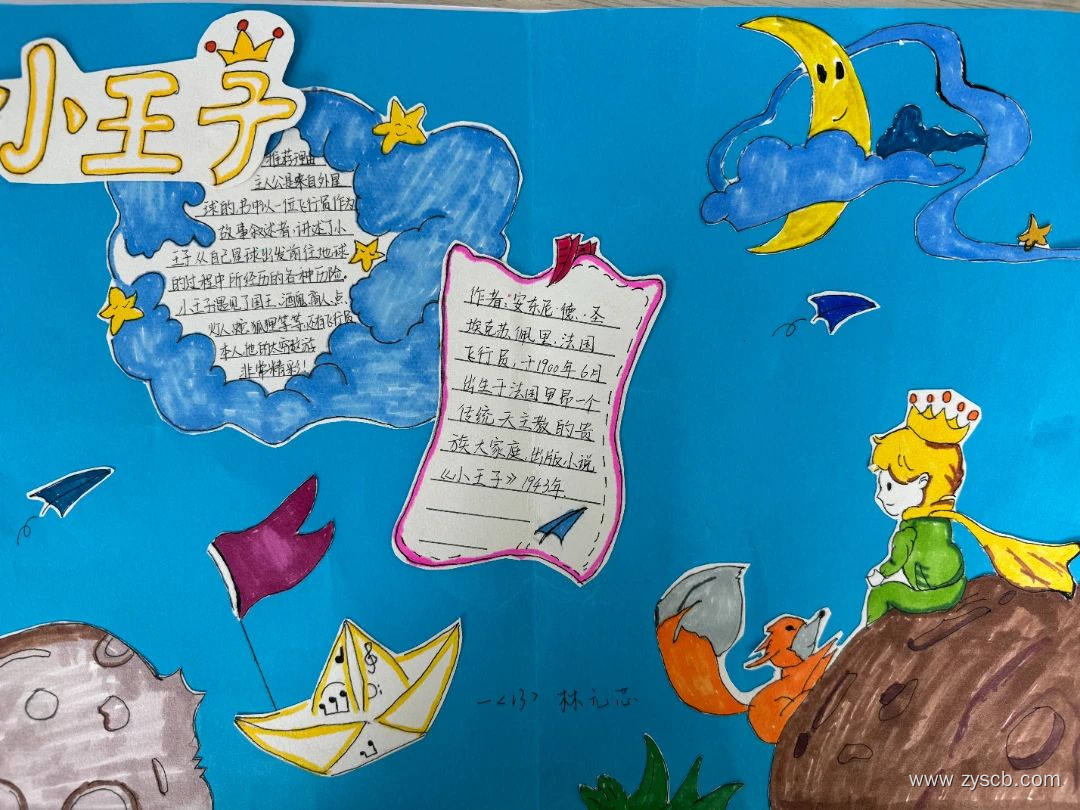 小王子
推荐理由
主人公是来自外星
球的.书中以一位飞行员作为
故事叙述者,讲述了小
王子从自己星球出发前往地球
的过程中所经历的各种历险。
小王子遇见了国王、酒鬼、商人、点
灯人、蛇、狐狸等等,还有飞行员
本人,他所
非常精彩!
作者:安东尼·德·圣
埃克苏佩里.法国
飞行员,于1900年6月
出生于法国里昂一个
传统天主教的贵
族大家庭.出版小说
《小王子》1943年.
一<13> 林元芯
www.zyscb.com